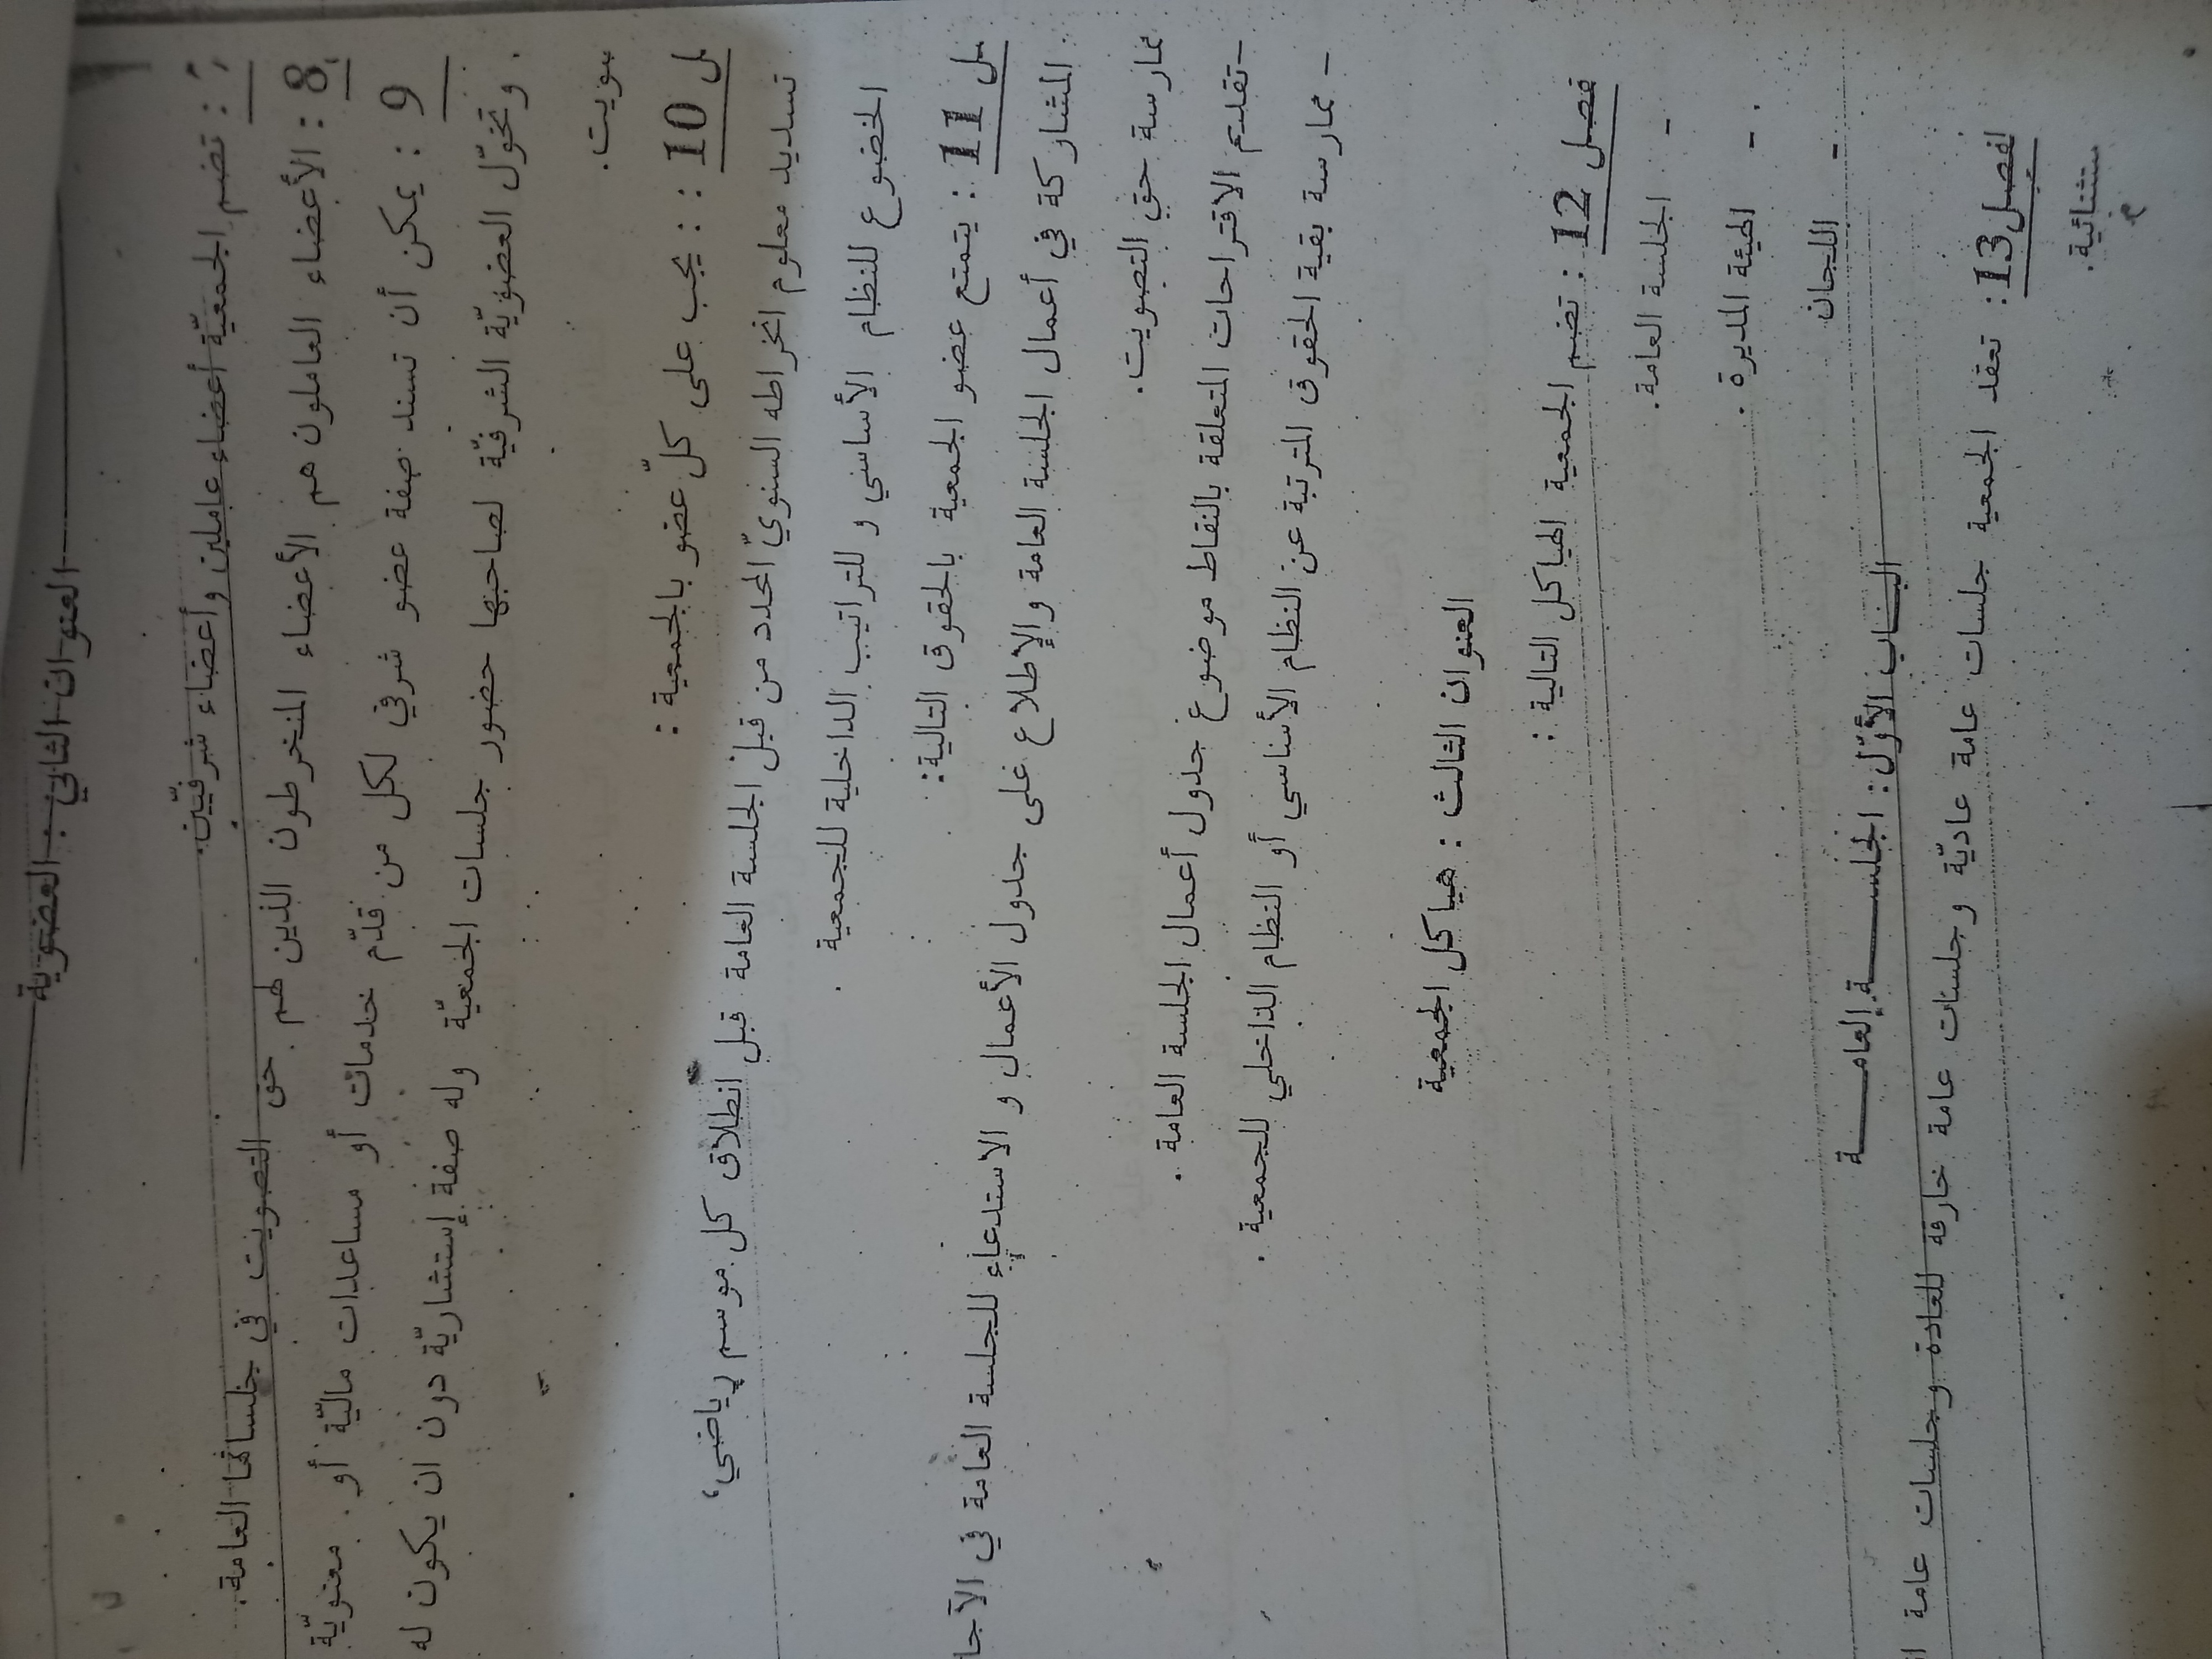 العنوان الثاني : العضوية
: تضم الجمعيّة أعضاء عاملين وأعضاء شرفيّين.
8 : الأعضاء العاملون هم الأعضاء المنخرطون الذين لهم حق التصويت في جلساتها العامة.
9 : يمكن أن تسند صفة عضو شرفي لكل من قدّم خدمات أو مساعدات ماليّة أو معنويّة
وتخوّل العضويّة الشرفيّة لصاحبها حضور جلسات الجمعيّة وله صفة إستشاريّة دون ان يكون له
صويت.
ل 10 : : يجب على كلّ عضو بالجمعية :
تسديد معلوم انخراطه السنويّ المحدد من قبل الجلسة العامة قبل انطلاق كل موسم رياضي،
الخضوع للنظام الأساسي و للتراتيب الداخلية للجمعية .
ل 11 : يتمتع عضو الجمعية بالحقوق التالية:
المشاركة في أعمال الجلسة العامة والإطلاع على جدول الأعمال و الاستدعاء للجلسة العامة في الآجا
ممارسة حق التصويت.
-تقديم الاقتراحات المتعلقة بالنقاط موضوع جدول أعمال الجلسة العامة .
- ممارسة بقية الحقوق المترتبة عن النظام الأساسي أو النظام الداخلي للجمعية .
العنوان الثالث : هياكل الجمعية
فصل 12 : تضم الجمعية الهياكل التالية :
- الجلسة العامة.
- الهيئة المديرة .
- اللجان
البـاب الأوّل: الجلســـة العامـــة
الفصل 13 : تعقد الجمعية جلسات عامة عاديّة وجلسات عامة خارقة للعادة وجلسات عامة ا
ستثنائية.